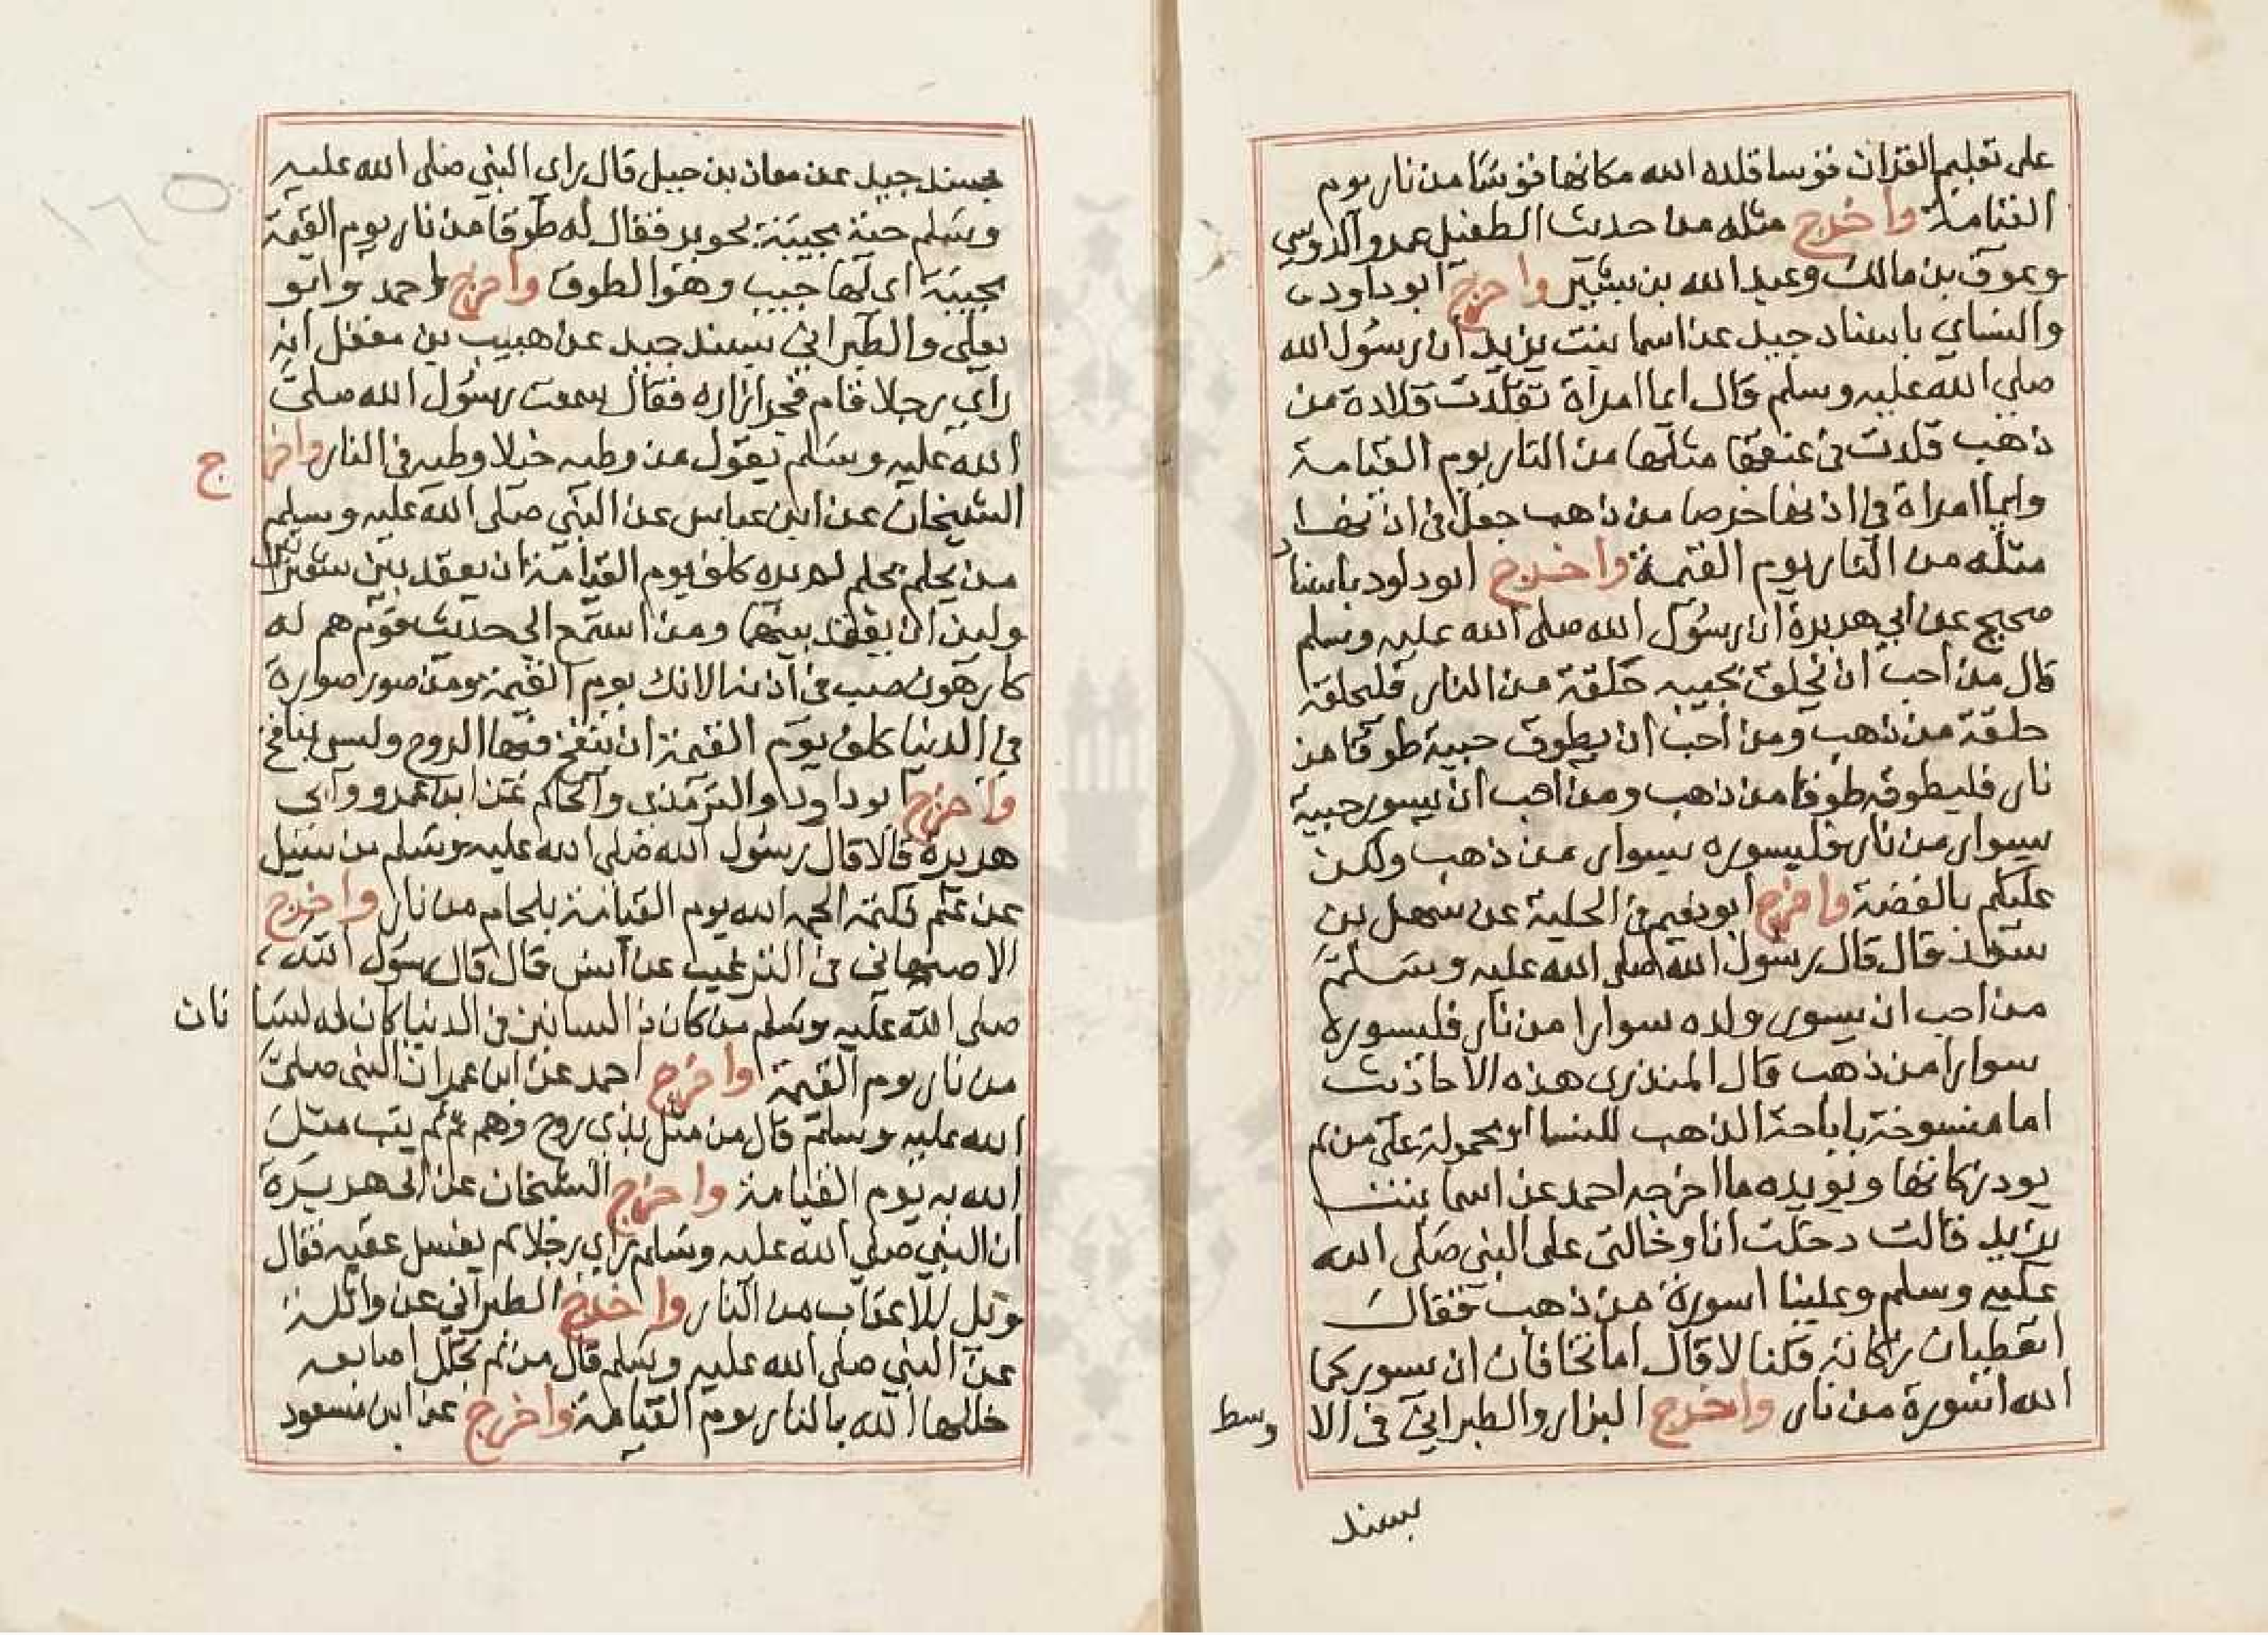 على تعليم القران قوسا قلده الله مكانها قوسا من نار يوم
القيامة واخرج مثله من حديث الطفيل عمرو الدوسي
وعوف بن مالك وعبد الله بن بشير واخرج ابو داود
والنساي باسناد جيد عن اسما بنت يزيد ان رسول الله
صلى الله عليه وسلم قال ايما امراة تقلدت قلادة من
ذهب قلدت في عنقها مثلها من النار يوم القيامة
وايما امراة في اذنها خرصا من ذهب جعل في اذنها
مثله من النار يوم القيمة واخرج ابو داود باسناد
صحيح عن ابي هريرة ان رسول الله صلى الله عليه وسلم
قال من احب ان يحلق بحبيبه حلقة من النار فليحلقه
حلقة من ذهب ومن احب ان يطوق حبيبه طوقا من
نار فليطوقه طوقا من ذهب ومن احب ان يسور حبيبه
بسوار من نار فليسوره بسوار من ذهب ولكن
عليكم بالفضة واخرج ابو نعيم في الحلية عن سهل بن
سعد قال قال رسول الله صلى الله عليه وسلم
من احب ان يسور ولده سوارا من نار فليسوره
سوارا من ذهب قال المنذرى هذه الاحاديث
اما منسوخة باباحة الذهب للنسا او محمولة على من لم
يود زكاتها ويويده ما اخرجه احمد عن اسما بنت
يزيد قالت دخلت انا وخالتى على النبى صلى الله
عليه وسلم وعلينا اسورة من ذهب فقال
اتعطيان زكاته قلنا لا قال اما تخافان ان يسوركما
الله اسورة من نار واخرج البزار والطبراني فى الا وسط
بسند
بسند جيد عن معاذ بن جبل قال راى النبي صلى الله عليه
وسلم جبة مجيبة بحرير فقال له طوقا من نار يوم القيمة
مجيبة اى لها جيب وهو الطوق واخرج احمد وابو
يعلى والطبراني بسند جيد عن هبيب بن مغفل انه
راي رجلا قام فجر ازاره فقال سمعت رسول الله صلى
الله عليه وسلم يقول من وطيه خيلا وطيه فى النار واخر ج
الشيخان عن ابن عباس عن النبي صلى الله عليه وسلم
من يحلم بحلم لم يره كلف يوم القيامة ان يعقد بين شعرتين
ولين ان يعقد بينهما ومن استمع الى حديث قوم هم له
كارهون صب في اذنه الانك يوم القيمة ومن صور صورة
في الدنيا كلف يوم القيمة ان ينفخ فيها الروح وليس بنافخ
واخرج ابو داود والترمذى والحاكم عن ابن عمرو وابى
هريرة قالا قال رسول الله صلى الله عليه وسلم من سيل
عن علم فكتمه الجمه الله يوم القيامة بلجام من نار واخرج
الاصبهاني في الترغيب عن انس قال قال رسول الله
صلى الله عليه وسلم من كان ذا لسانين فى الدنيا كان له لسا نان
من نار يوم القيمة واخرج احمد عن ابن عمر ان النبى صلى
الله عليه وسلم قال من مثل بذي روح وهم لم يتب مثل
الله به يوم القيامة واخرج الشيخان عن ابى هريرة
ان النبي صلى الله عليه وسلم راي رجلا لم يغسل عقبه فقال
ويل للاعقاب من النار واخرج الطبراني عن واثلة
عن النبي صلى الله عليه وسلم قال من لم يخلل اصابعه
خللها الله بالنار يوم القيامة واخرج عن ابن مسعود